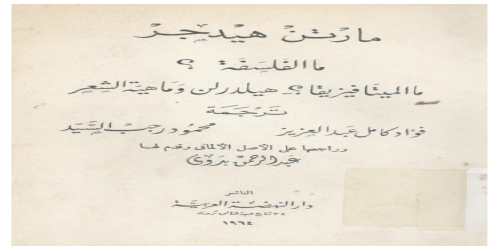 مارتن هيدجر
ما الفلسفة ؟
ما الميتافيزيقا ؟ هيلدرلن وماهية الشعر
ترجمة
فؤاد كامل عبد العزيز محمود رجب السيد
وراجعها على الأصل الألماني وقدم لها
عبد الرحمن بدوي
الناشر
دار النهضة العربية
١٩٦٤